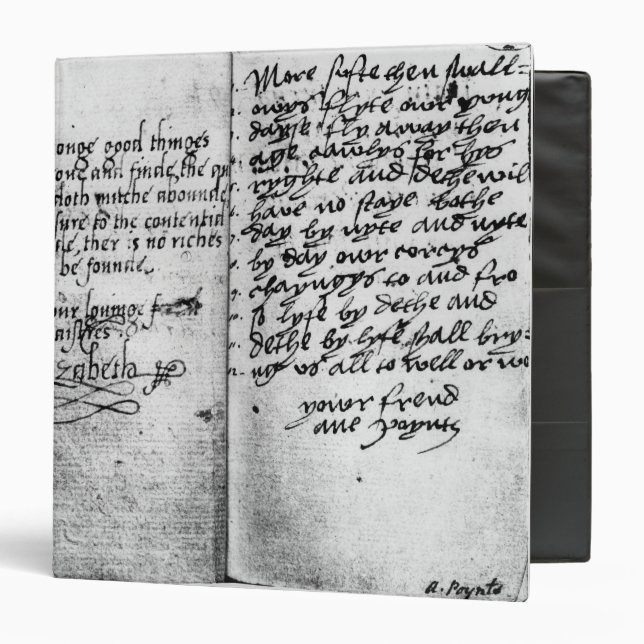 onge good thinges
one and finde, the
doth mutche abounde
sure to the contentid
ther is no riches
be founde.
our lovinge
maistres
zabeth
More swfte then swall-
owys flyte owr yong
dayse fly away then
age cawlys for hys
ryghte and dethe wil
have no staye bothe
day by nyte and nyte
by day owr corcys
chayngys to and fro
so lyfe by dethe and
dethe by lyfe shall bry-
ng us all to well or wo
yowr frend
ane Poynts
A. Poynts